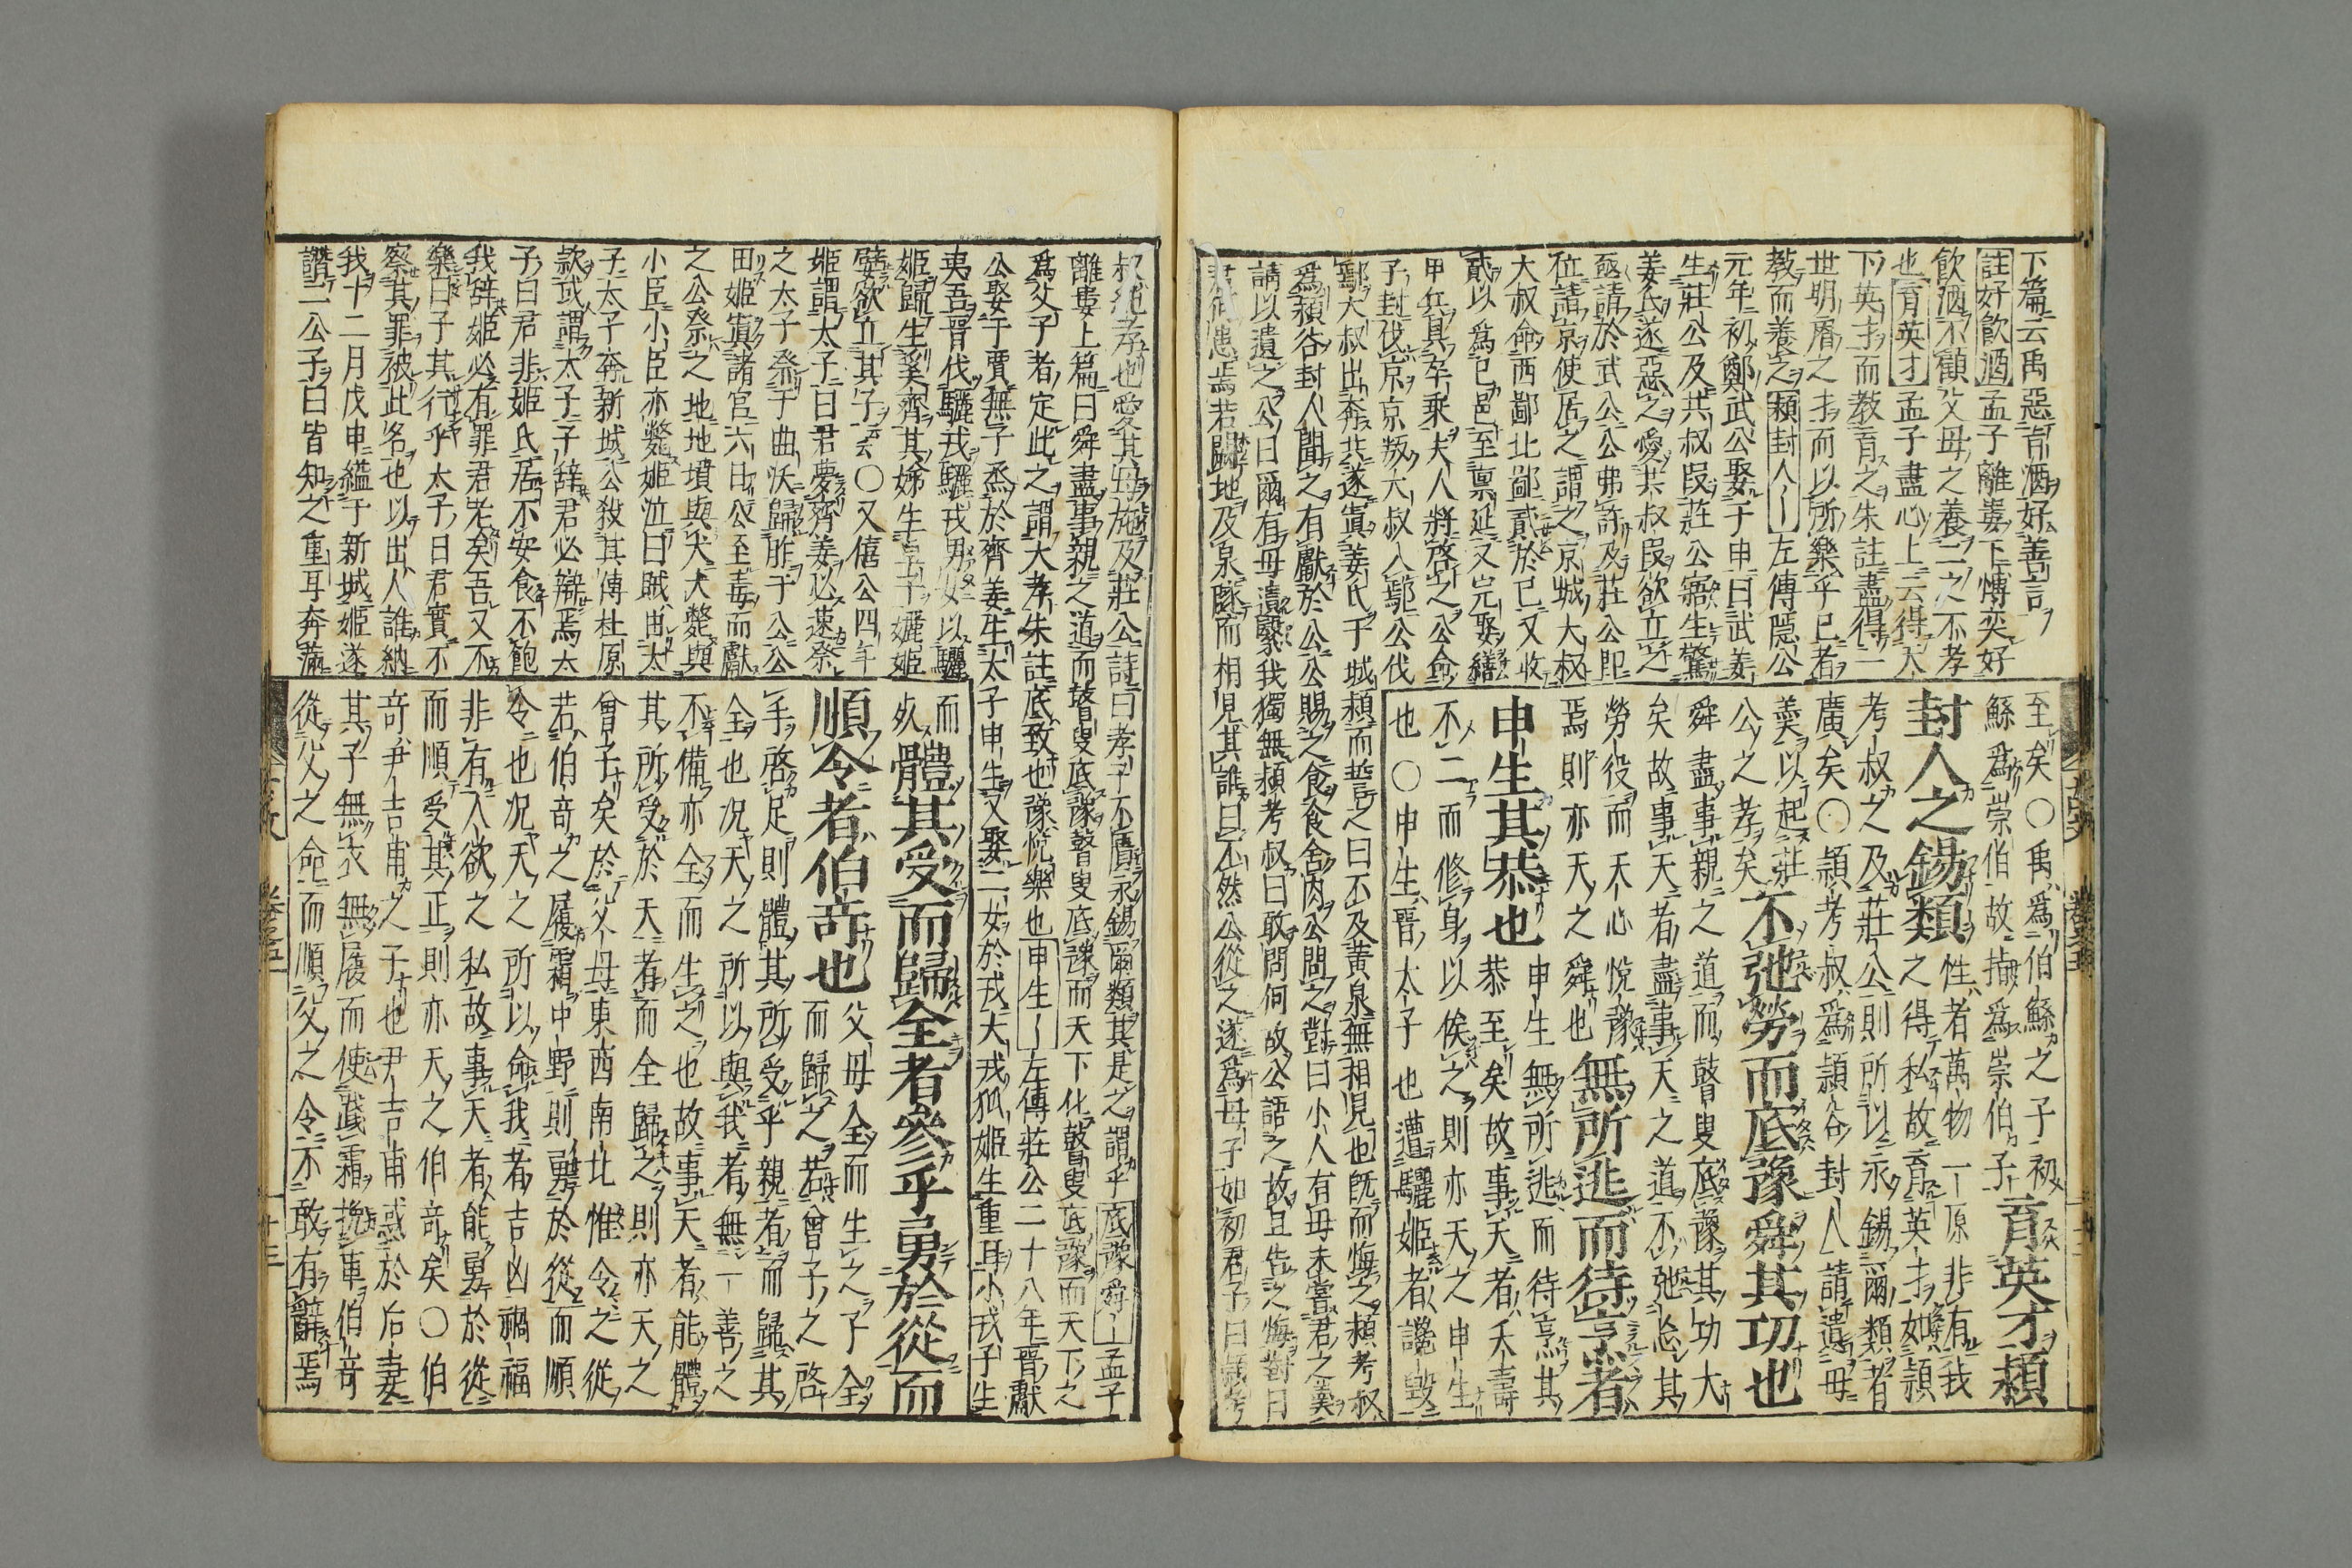 下篇云禹惡旨酒好善言
註好飲酒孟子離婁下愽奕好
飲酒不顧父母之養二之不孝
也育英才孟子盡心上云得天
下英才而教育之朱註盡得一
世明睿之才而以所樂乎已者
教而養之頴封人〡左傳隱公
元年初鄭武公娶于申曰武姜
生莊公及共叔段莊公寤生驚
姜氏遂惡之愛共叔段欲立之
亟請於武公公弗許及莊公即
位請京使居之謂之京城大叔
大叔命西鄙北鄙貳於已又收
貳以爲已邑至禀延又完聚繕
甲兵具卒乘夫人將啓之公命
子封伐京京叛大叔入鄢公伐
鄢大叔出奔共遂寘姜氏于城頴而誓之曰不及黄泉無相見也既而悔之頴考叔
爲頴谷封人聞之有獻於公公賜之食食舍肉公問之對曰小人有母未嘗君之羹
請以遺之公曰爾有母遺繄我獨無頴考叔曰敢問何故公語之故且告之悔對曰
君何患焉若闕地及泉隧而相見其誰曰不然公從之遂爲母子如初君子曰頴考
至矣○禹爲伯鯀之子初育英才頴
鯀爲崇伯故揷爲崇伯子
封人之錫類性者萬物一原非有我
之得私故育英才如頴
考叔之及莊公則所以永錫爾類者
廣矣○頴考叔爲頴谷封人請遺母
羹以起莊不弛勞而底豫舜其功也
公之孝矣
舜盡事親之道而瞽叟底豫其功大
矣故事天者盡事天之道不弛怠其
勞役而天心悅豫無所逃而待烹者
焉則亦天之舜也
申生其恭也申生無所逃而待烹其
恭至矣故事天者夭壽
不二而修身以俟之則亦天之申生
也○申生晋太子也遭驪姬者讒毀
叔純孝也愛其母施及莊公詩曰孝子不匱永錫爾類其是之謂乎底豫舜〡孟子
離婁上篇曰舜盡事親之道而瞽叟底豫瞽叟底豫而天下化瞽叟底豫而天下之
爲父子者定此之謂大孝朱註底致也豫悅樂也申生〡左傳莊公二十八年晋獻
公娶于賈無子烝於齊姜生太子申生又娶二女於戎大戎狐姬生重耳小戎子生
夷吾晋伐驪戎驪戎男女以驪
姬歸生奚齊其娣生卓子驪姬
嬖欲立其子云云○又僖公四年
姬謂太子曰君夢齊姜必速祭
之太子祭于曲沃歸胙于公公
田姬寘諸宮六日公至毒而獻
之公祭之地地墳與犬犬斃與
小臣小臣亦斃姬泣曰賊由太
子太子奔新城公殺其傅杜原
款或謂太子子辞君必辯焉太
子曰君非姬氏居不安食不飽
我辞姬必有罪君老矣吾又不
樂曰子其行乎太子曰君實不
察其罪被此名也以出人誰納
我十二月戊申縊于新城姬遂
譖二公子曰皆知之重耳奔蒲
而
歿體其受而歸全者參乎勇於從而
順令者伯奇也父母全而生之子全
而歸之若曾子之啓
手啓足則體其所受乎親者而歸其
全也况天之所以與我者無一善之
不備亦全而生之也故事天者能體
其所受於天者而全歸之則亦天之
曾子矣於父母東西南北惟令之從
若伯奇之履霜中野則勇於從而順
令也况天之所以命我者吉凶禍福
非有人欲之私故事天者能勇於從
而順受其正則亦天之伯奇矣○伯
奇尹吉甫之子也尹吉甫惑於后妻
其子無衣無履而使踐霜挽車伯奇
從父之命而順父之令不敢有辭焉